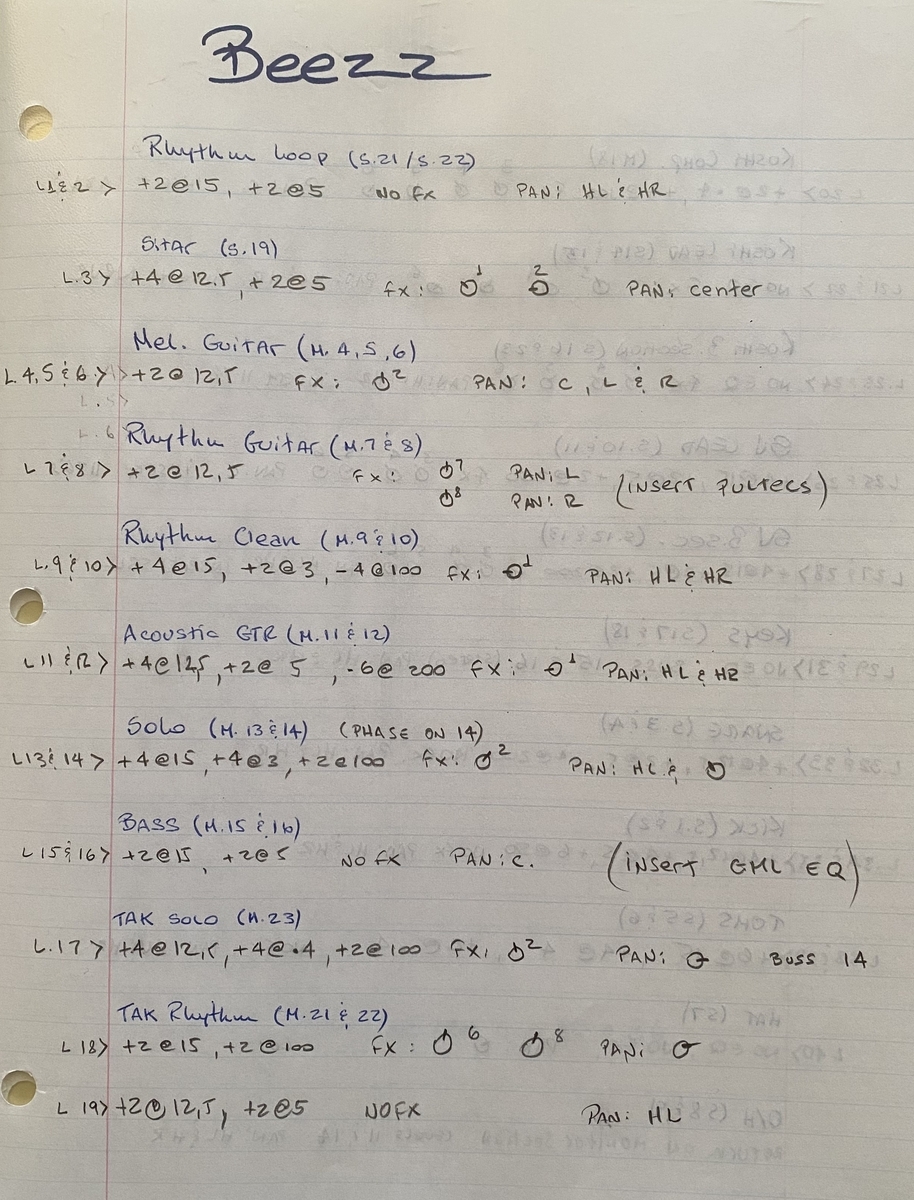 Beezz
Rhythm Loop (S.21/S.22)
L1 & 2 > +2@15, +2@5 NO FX PAN: HL & HR
Sitar (S.19)
L.3> +4@12.5, +2@5 fx: 1 2 PAN: center
Mel. Guitar (M.4,5,6)
L.4,5 & 6 > +2@12,5 FX: 2 PAN: C, L & R
L.5>
L.6 Rhythm Guitar (M.7 & 8)
L 7 & 8> +2@12,5 FX: 7 PAN: L
8 PAN: R (INSERT PULTECS)
Rhythm Clean (M.9 & 10)
L.9 & 10> +4@15, +2@3, -4@100 FX: 1 PAN: HL & HR
Acoustic GTR (M.11 & 12)
L11 & 12> +4@12,5, +2@5, -6@200 FX: 1 PAN: HL & HR
Solo (M.13 & 14) (PHASE ON 14)
L13 & 14> +4@15, +4@3, +2@100 FX: 2 PAN: HL &
BASS (M.15 & 16)
L15 & 16> +2@15, +2@5 NO FX PAN: C. (INSERT GML EQ)
TAK SOLO (M.23)
L.17> +4@12,5, +4@.4, +2@100 FX: 2 PAN: BUSS 14
TAK Rhythm (M.21 & 22)
L 18> +2@15, +2@100 FX: 6 8 PAN:
L 19> +2@12,5, +2@5 NO FX PAN: HL